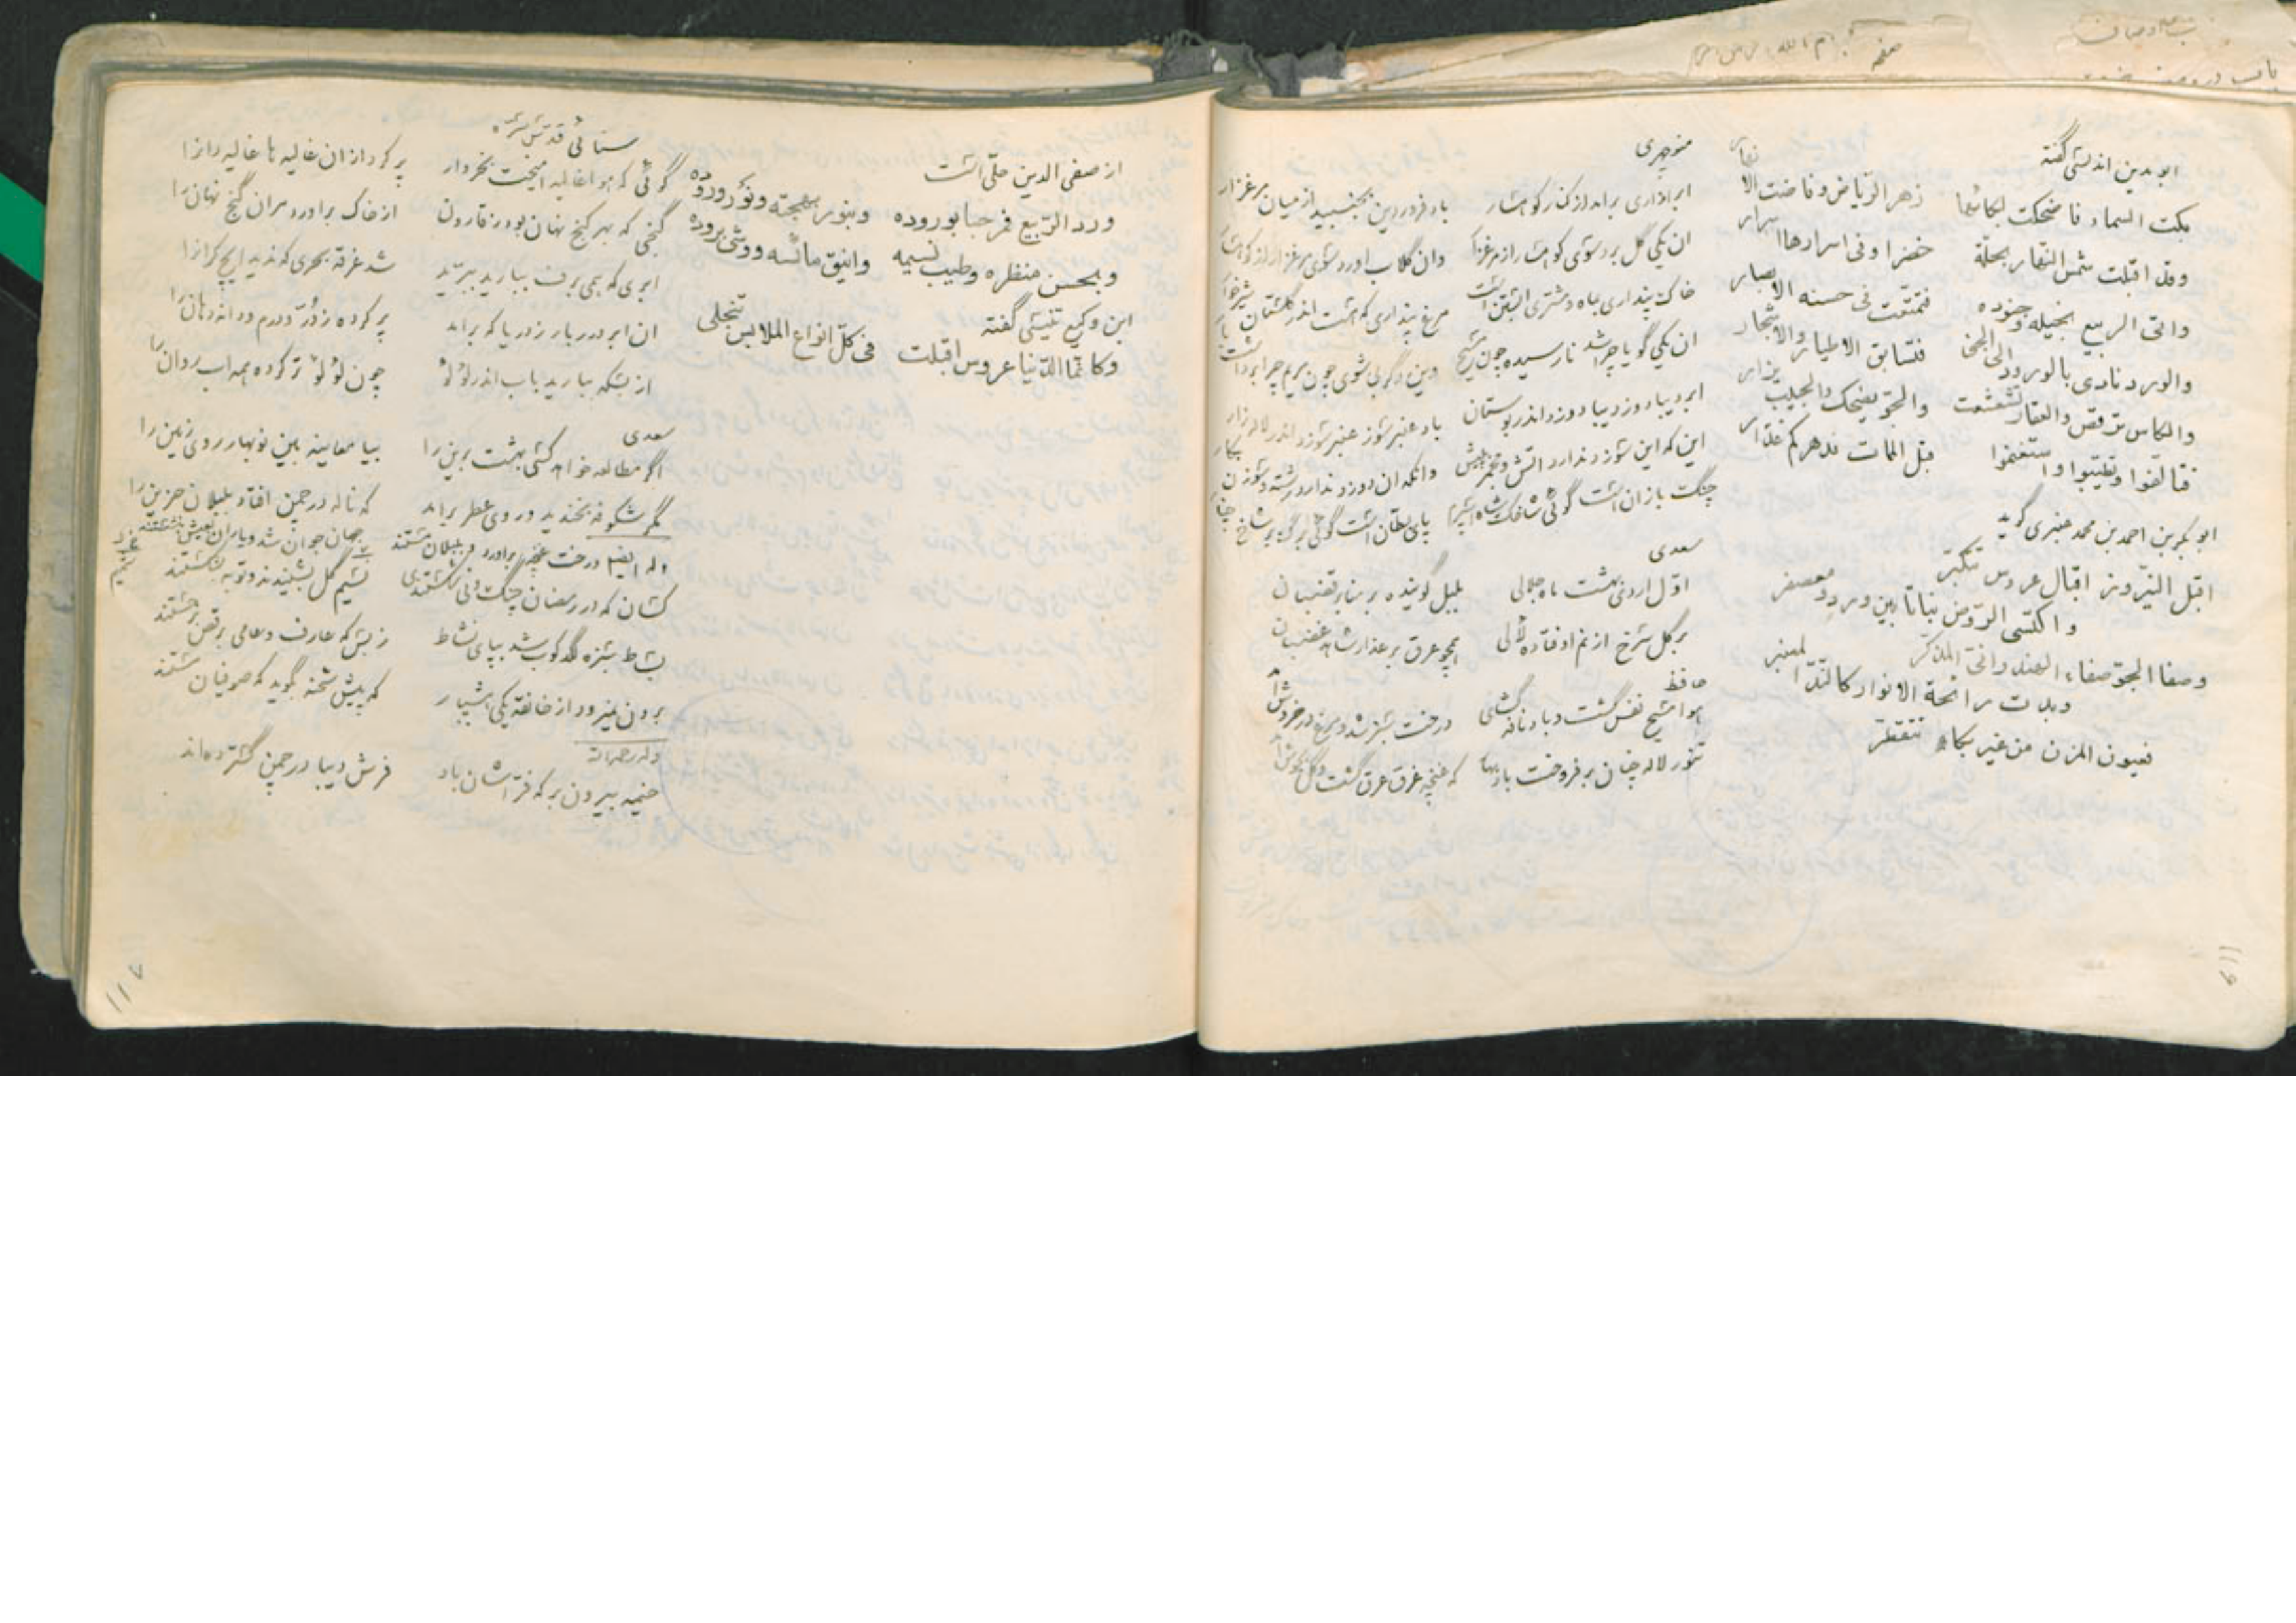 ابو مدین اندلسی گفته
بکت السماء فاضحکت لبکائها زهر الریاض وفاضت الانهار
وقد اقبلت شمس النهار بحلة خضرا وفی اسرارها اسرار
واتی الربیع بخیله وجنوده فتمتعت فی حسنه الابصار
والورد نادی بالورود الی الجنی فتسابق الاطیار والاشجار
والکاس ترقص والعقار تشعشعت والجو یضحک والحبیب یزار
فتالفوا وتطیبوا واستغنموا قبل الممات فدهرکم غدار
ابو بکر بن احمد بن محمد عنبری گوید
اقبل النیروز اقبال عروس تتکبر
واکتسی الروض نباتا بین ورد ومعصفر
وصفا الجو صفاء الهندوانی المذکر
وبدت رائحة الانوار کالند المعنبر
فعیون المزن من غیر بکاء تتقطر
منوچهری
ابر اذاری برامد از کنار کوهسار باد فروردین بجنبید از میان مرغزار
ان یکی گل برد سوی کوهسار از مرغزار وان گلاب اورد سوی مرغزار از کوهسار
خاک پنداری بماه و مشتری ابستن است مرغ پنداری که هست اندر گلستان شیرخوار
ان یکی گویا چرا شد نارسیده چون مسیح وین دگر بی شوی چون مریم چرا برداشت بار
ابر دیبا دوز دیبا دوزد اندر بوستان باد عنبر سوز عنبر سوزد اندر لاله زار
این که این سوزد ندارد اتش و مجمر به پیش وانکه ان دوزد ندارد رشته و سوزن بکار
چنگ بازان است گوئی شاخک شاه اسپرم پای بطان است گوئی برگ بر شاخ چنار
سعدی
اول اردیبهشت ماه جلالی بلبل گوینده بر منابر قضبان
بر گل سرخ از نم اوفتاده لالی همچو عرق بر عذار شاهد غضبان
حافظ
هوا مسیح نفس گشت و باد نافه گشای درخت سبز شد و مرغ در خروش امد
تنور لاله چنان بر فروخت باد بهار که غنچه غرق عرق گشت و گل بجوش امد
۱۱۶
از صفی الدین حلّی است
ورد الربیع فمرحبا بوروده وبنور بهجته ونور وروده
وبحسن منظره وطیب نسیمه وانیق مالسه ووشی بروده
ابن وکیع تنیسی گفته
وکانما الدنیا عروس اقبلت فی کل انواع الملابس تنجلی
سنائی قدس سره
گوئی که هوا غالیه امیخت بخروار پر کرد ازان غالیه ها غالیه دانرا
گنجی که بهر کنج نهان بود ز قارون از خاک براورد مران گنج نهان را
ابری که همی برف ببارید ببرید شد غرقه بحری که ندید ایچ کرانرا
ان ابر درر بار ز دریا که براید پر کرده ز درّ و درم و دانه دهان را
از بسکه ببارید باب اندر لؤلؤ چون لؤلؤ تر کرده همه اب روان را
سعدی
اگر مطالعه خواهد کسی بهشت برین را بیا معاینه بین نوبهار روی زمین را
مگر شکوفه بخندید و بوی عطر براید که ناله در چمن افتاد بلبلان حزین را
وله ایضا
درخت غنچه براورد و بلبلان مستند جهان جوان شد و یاران بعیش بنشستند
کسان که در رمضان چنگ و نی شکستندی نسیم گل بشنیدند و توبه بشکستند
بساط سبزه لگدکوب شد بپای نشاط ز بس که عارف و عامی برقص برجستند
برون نمیرود از خانقه یکی هشیار که پیش شحنه بگوید که صوفیان مستند
وله رحمه الله
خیمه بیرون بر که فراشان باد فرش دیبا در چمن گسترده اند
۱۱۷